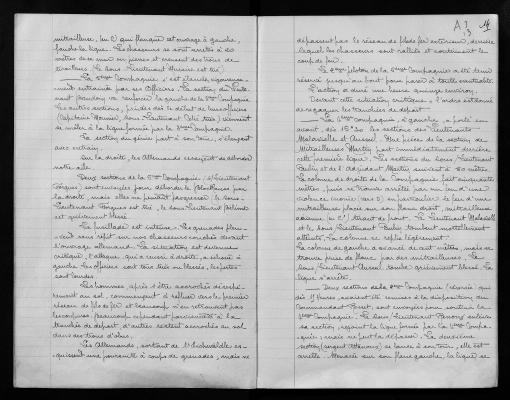 mitrailleuse, (en C) qui flanquait ouvrage à gauche,
fauche la ligne. Les chasseurs se sont arrêtés à 20
mètres de ce mur en pierres et creusent des trous de
tirailleurs. Le Sous Lieutenant est tué.
La 5ème Compagnie s'est élancée, vigoureu-
sement entraînée par ses Officiers. La section du Lieute-
nant va renforcer la gauche de la 3ème Compagnie.
Les autres sections, privées dès le début de leurs officiers
(Capitaine tué, Sous Lieutenant tué) viennent
se mêler à la ligne formée par la 3ème Compagnie.
La section du génie part à son tour, s'élançant
avec entrain.
Sur la droite, les Allemands essayent de déborder
notre aile.
Deux sections de la 5ème Compagnie (S/Lieutenant
Forgues) sont envoyées pour déborder le Blockhaus par
la droite, mais elles ne peuvent progresser; le Sous-
Lieutenant Forgues est tué, le Sous Lieutenant
est grièvement blessé.
La fusillade est intense. Les grenades pleu-
vent sans répit sur nos chasseurs couchés devant
l'ouvrage allemand. La situation est devenue
critique; l'attaque, qui a réussi à droite, a échoué à
gauche. Les officiers sont tous tués ou blessés, les pertes
sont lourdes.
Les hommes, après s'être accrochés désespé-
rément au sol, commencent à refluer vers le premier
réseau de fils de fer et beaucoup n'en retrouvent pas
les coupures; beaucoup cependant parviennent à la
tranchée de départ d'autres restent accrochés au sol
dans des trous d'obus.
Les Allemands, sortant de l' es-
quissent une poursuite à coups de grenades, mais ne
A 3
13
14
dépassent pas le réseau de fils de fer extérieur, derrière
lequel les chasseurs sont ralliés et soutiennent le
coup de feu.
Le 4ème peloton de la 5ème Compagnie a été tenu
réservé jusqu'au bout pour parer à toute éventualité.
L'action a duré une heure quinze environ.
Devant cette situation critique, l'ordre est donné
de regagner les tranchées de départ.
La 1ère Compagnie, à gauche, a porté en
avant, dès 15h30 les sections des Lieutenants
Malavielle et Aurard. Une pièce de la section de
Mitrailleuses Martin part immédiatement derrière
cette première ligne. Les sections du Sous Lieutenant
Paulry et de l'Adjudant Martin suivent à 80 mètres.
La colonne de droite de la Compagnie fait cinquante
mètres, puis se trouve arrêtée par un feu d'une
violence (inouïe) (vers B) en particulier le feu d'une
mitrailleuse placée sur son flanc droit, mitrailleuse
amenée en C' tirant de front. Le Lieutenant Malavielle
et le Sous Lieutenant Paulry tombent mortellement
atteints. La colonne se replie légèrement.
La colonne de gauche a avancé de cent mètres, mais se
trouve prise de flanc par des mitrailleuses. Le
Sous Lieutenant Aurard tombe grièvement blessé. La
ligne s'arrête.
Deux sections de la 4ème Compagnie (réserve) qui
dès 15 heures avaient été remises à la disposition du
Commandant Barrié, sont envoyées pour soutenir la
1ère Compagnie. Le Sous Lieutenant enlève
sa section, rejoint la ligne formée par la 1ère Compa-
gnie; mais ne peut la dépasser. La deuxième
section (sergent ) se lance à son tour, elle est
arrêtée. Menacée sur son flanc gauche, la ligne se